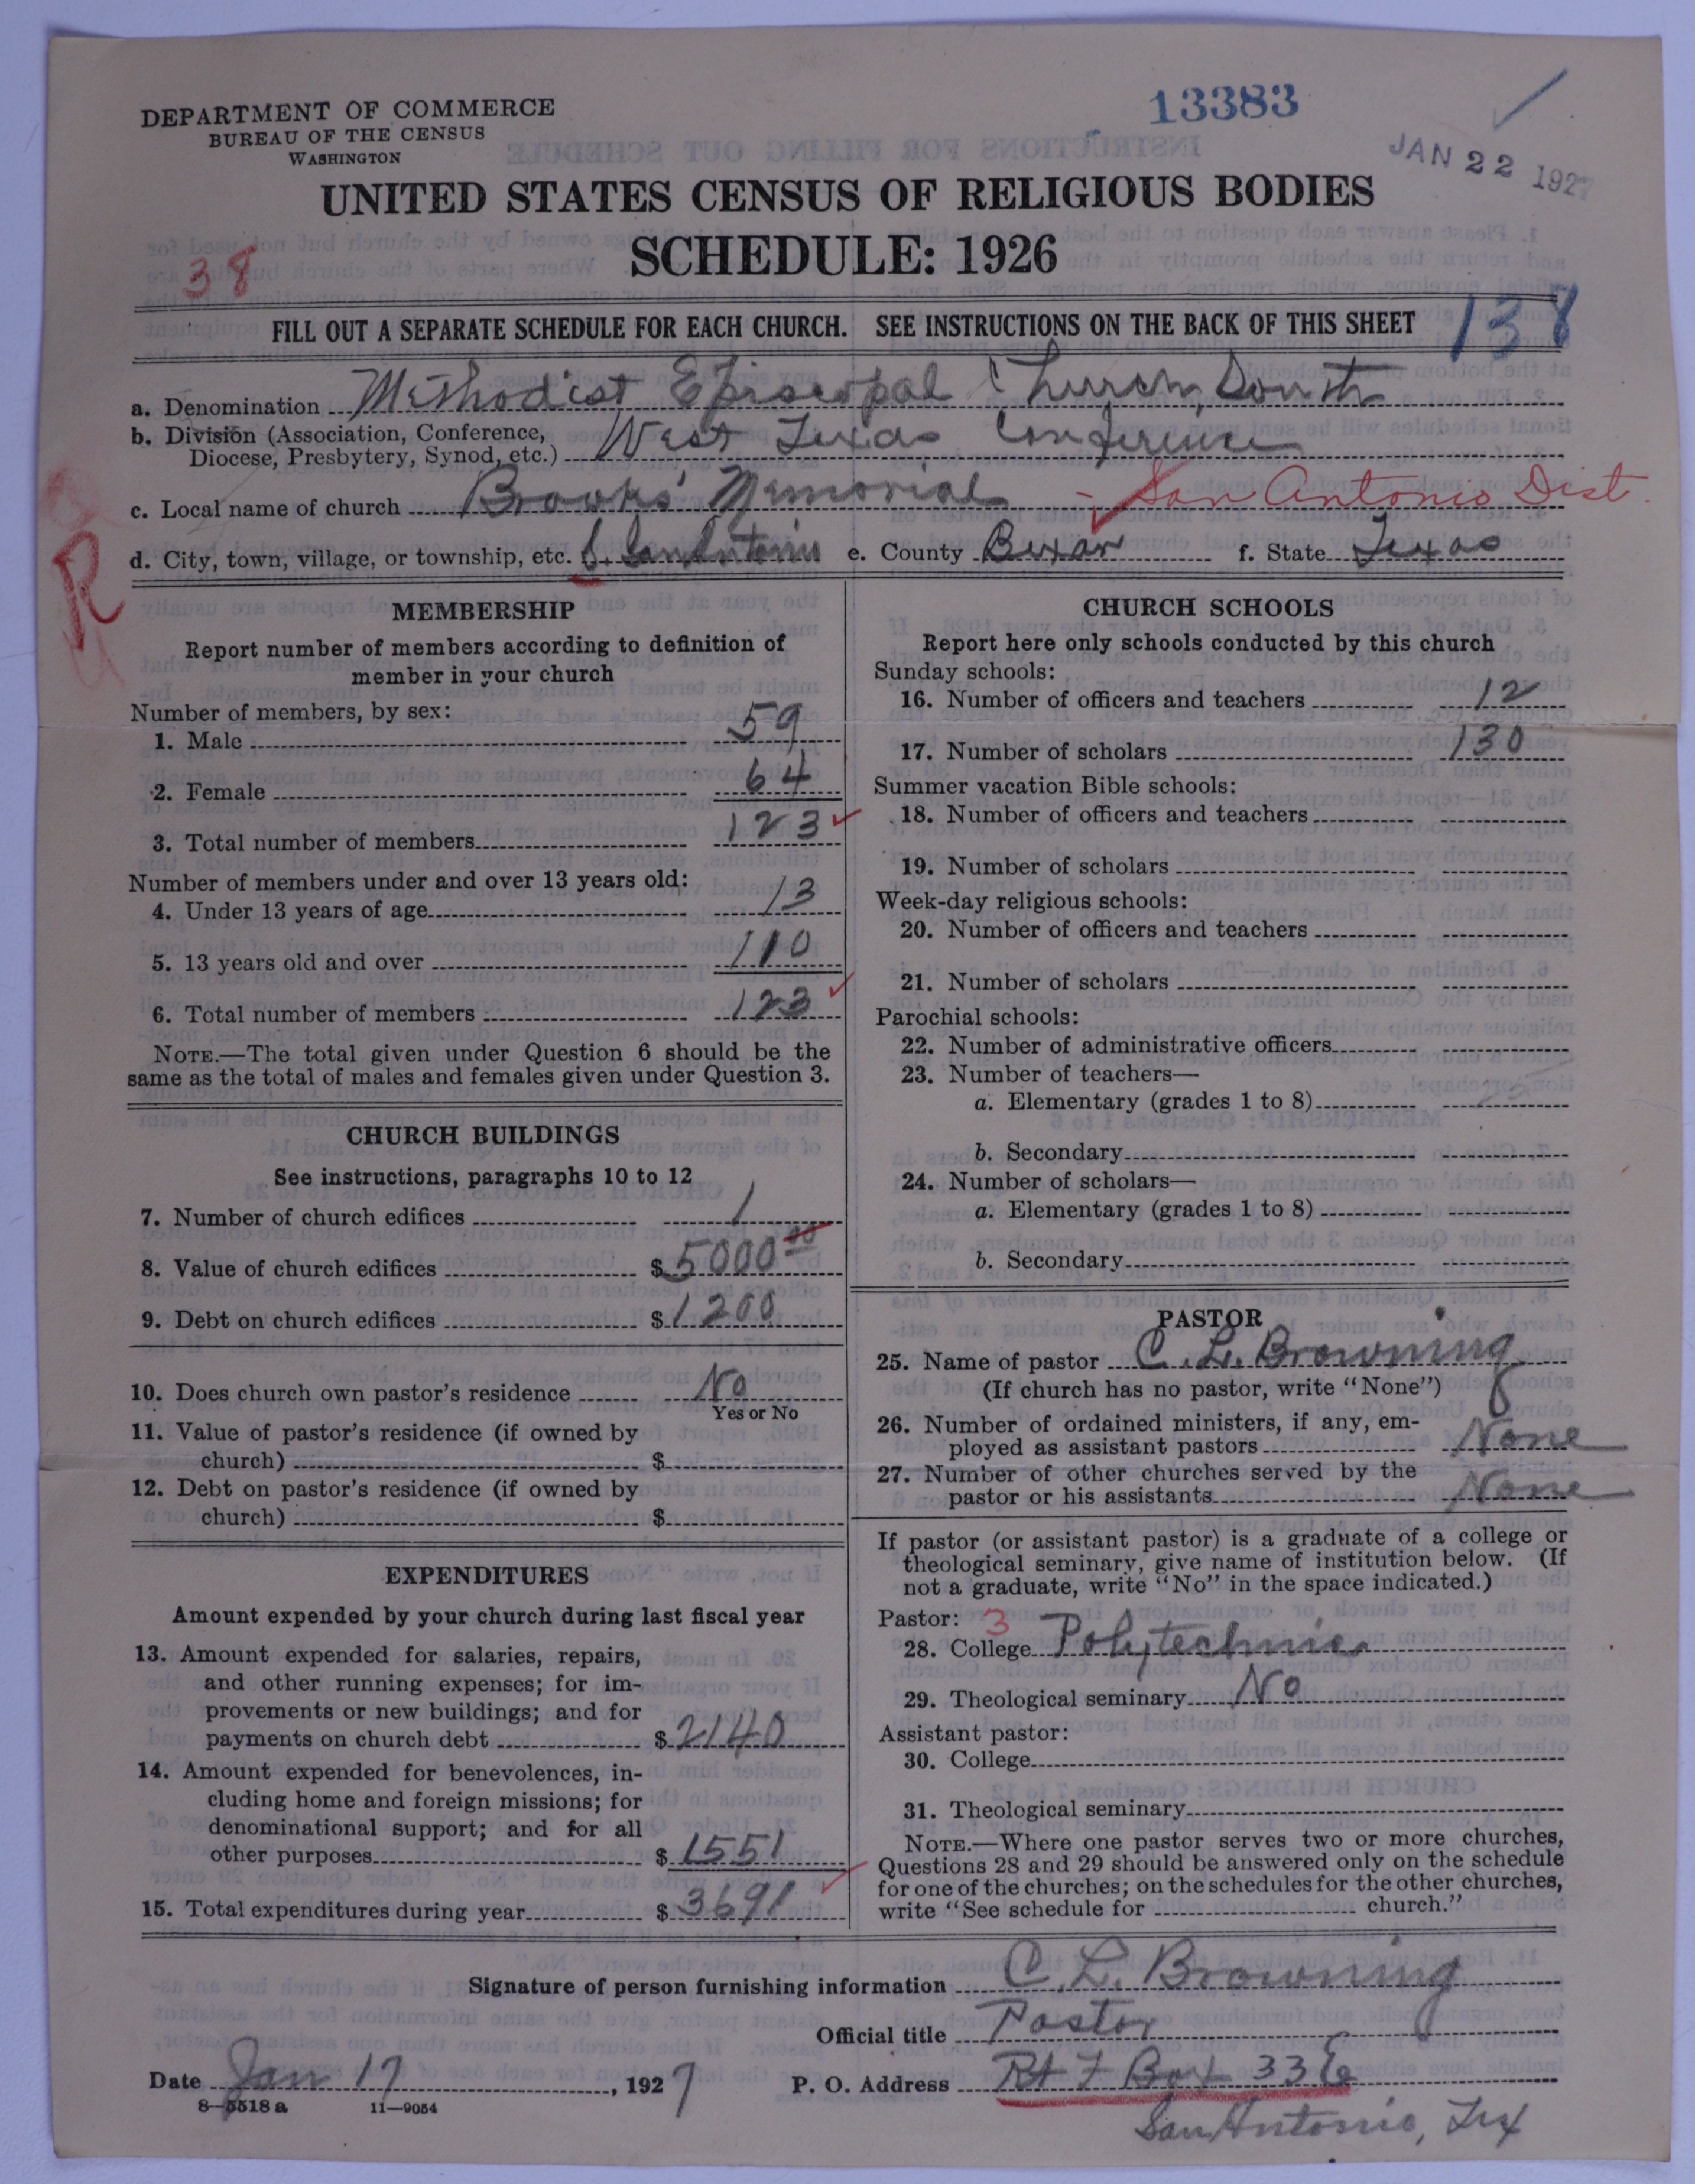 DEPARTMENT OF COMMERCE
BUREAU OF THE CENSUS
WASHINGTON
13383
JAN 22 1927
UNITED STATES CENSUS OF RELIGIOUS BODIES
SCHEDULE: 1926
38
FILL OUT A SEPARATE SCHEDULE FOR EACH CHURCH. SEE INSTRUCTIONS ON THE BACK OF THIS SHEET
137
a. Denomination Methodist Episcopal Church, South
b. Division (Association, Conference, Diocese, Presbytery, Synod, etc.) West Texas Conference
c. Local name of church Brooks' Memorial - San Antonio Dist
d. City, town, village, or township, etc. S. San Antonio e. County Bexar f. State Texas
R
MEMBERSHIP
Report number of members according to definition of
member in your church
Number of members, by sex:
1. Male 59
2. Female 64
3. Total number of members 123
Number of members under and over 13 years old:
4. Under 13 years of age 13
5. 13 years old and over 110
6. Total number of members 123
NOTE.—The total given under Question 6 should be the
same as the total of males and females given under Question 3.
CHURCH BUILDINGS
See instructions, paragraphs 10 to 12
7. Number of church edifices 1
8. Value of church edifices $ 5000 00
9. Debt on church edifices $ 1200
10. Does church own pastor's residence No
Yes or No
11. Value of pastor's residence (if owned by
church) $
12. Debt on pastor's residence (if owned by
church) $
EXPENDITURES
Amount expended by your church during last fiscal year
13. Amount expended for salaries, repairs,
and other running expenses; for im-
provements or new buildings; and for
payments on church debt $ 2140
14. Amount expended for benevolences, in-
cluding home and foreign missions; for
denominational support; and for all
other purposes $ 1551
15. Total expenditures during year $ 3691
CHURCH SCHOOLS
Report here only schools conducted by this church
Sunday schools:
16. Number of officers and teachers 12
17. Number of scholars 130
Summer vacation Bible schools:
18. Number of officers and teachers
19. Number of scholars
Week-day religious schools:
20. Number of officers and teachers
21. Number of scholars
Parochial schools:
22. Number of administrative officers
23. Number of teachers—
a. Elementary (grades 1 to 8)
b. Secondary
24. Number of scholars—
a. Elementary (grades 1 to 8)
b. Secondary
PASTOR
25. Name of pastor C. L. Browning
(If church has no pastor, write "None")
26. Number of ordained ministers, if any, em-
ployed as assistant pastors None
27. Number of other churches served by the
pastor or his assistants None
If pastor (or assistant pastor) is a graduate of a college or
theological seminary, give name of institution below. (If
not a graduate, write "No" in the space indicated.)
Pastor: 3
28. College Polytechnic
29. Theological seminary No
Assistant pastor:
30. College
31. Theological seminary
NOTE.—Where one pastor serves two or more churches,
Questions 28 and 29 should be answered only on the schedule
for one of the churches; on the schedules for the other churches,
write "See schedule for church."
Signature of person furnishing information C. L. Browning
Official title Pastor
Date Jan 17, 1927 P. O. Address Rt 7 Box 33
San Antonio, Tex
8—5518 a 11—9054